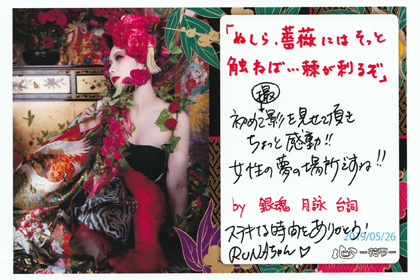 「ぬしら、薔薇にはそっと
触れば…棘が刺るぞ」
撮
初めて影を見せて頂き
ちょっと感動!!
女性の夢の場所ですね!!
by 銀魂 月詠 台詞
ステキな時間をありがとう!
RUNAちゃん♡
2019/05/26